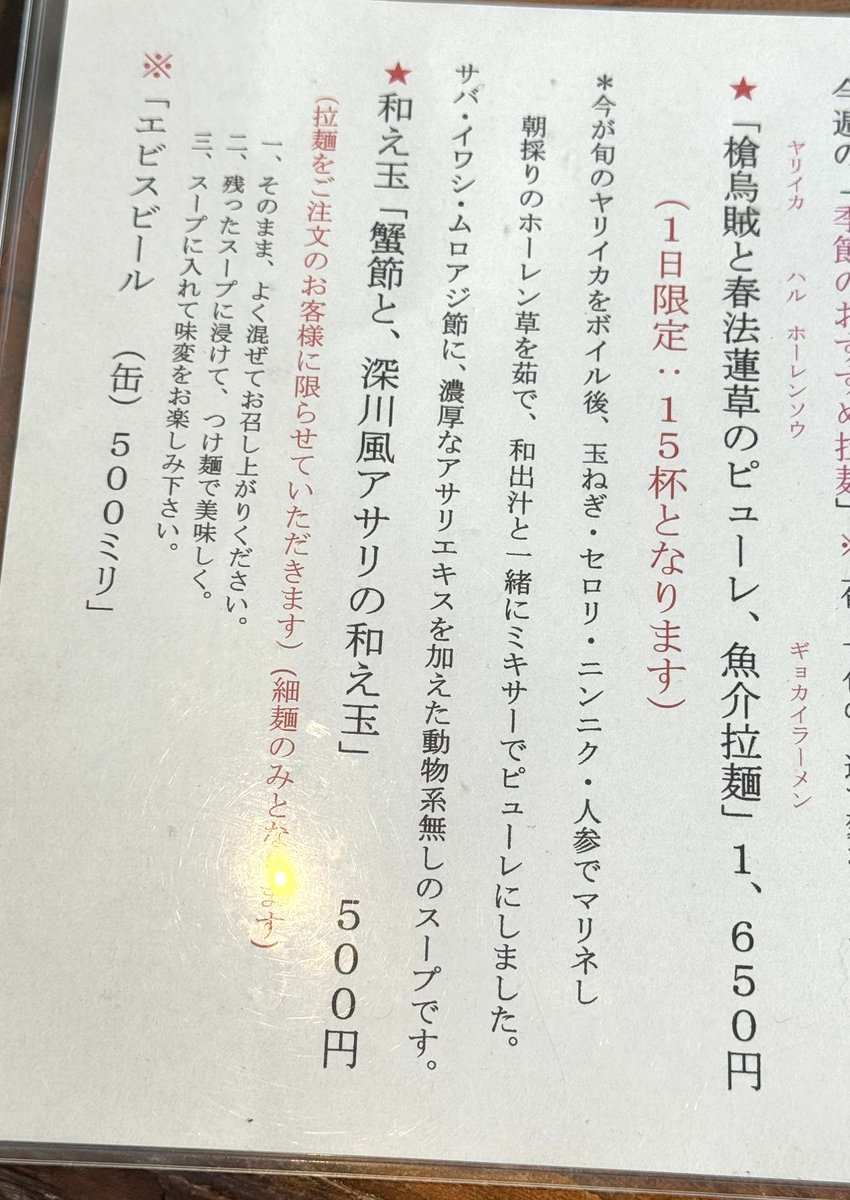 今週の「季節のおすすめ拉麺」※
ヤリイカ ハル ホーレンソウ ギョカイラーメン
★「槍烏賊と春法蓮草のピューレ、魚介拉麺」1、650円
(1日限定:15杯となります)
*今が旬のヤリイカをボイル後、玉ねぎ・セロリ・ニンニク・人参でマリネし
朝採りのホーレン草を茹で、和出汁と一緒にミキサーでピューレにしました。
サバ・イワシ・ムロアジ節に、濃厚なアサリエキスを加えた動物系無しのスープです。
★和え玉「蟹節と、深川風アサリの和え玉」 500円
(拉麺をご注文のお客様に限らせていただきます)(細麺のみとなります)
一、そのまま、よく混ぜてお召し上がりください。
二、残ったスープに浸けて、つけ麺で美味しく。
三、スープに入れて味変をお楽しみ下さい。
※「エビスビール (缶)500ミリ」